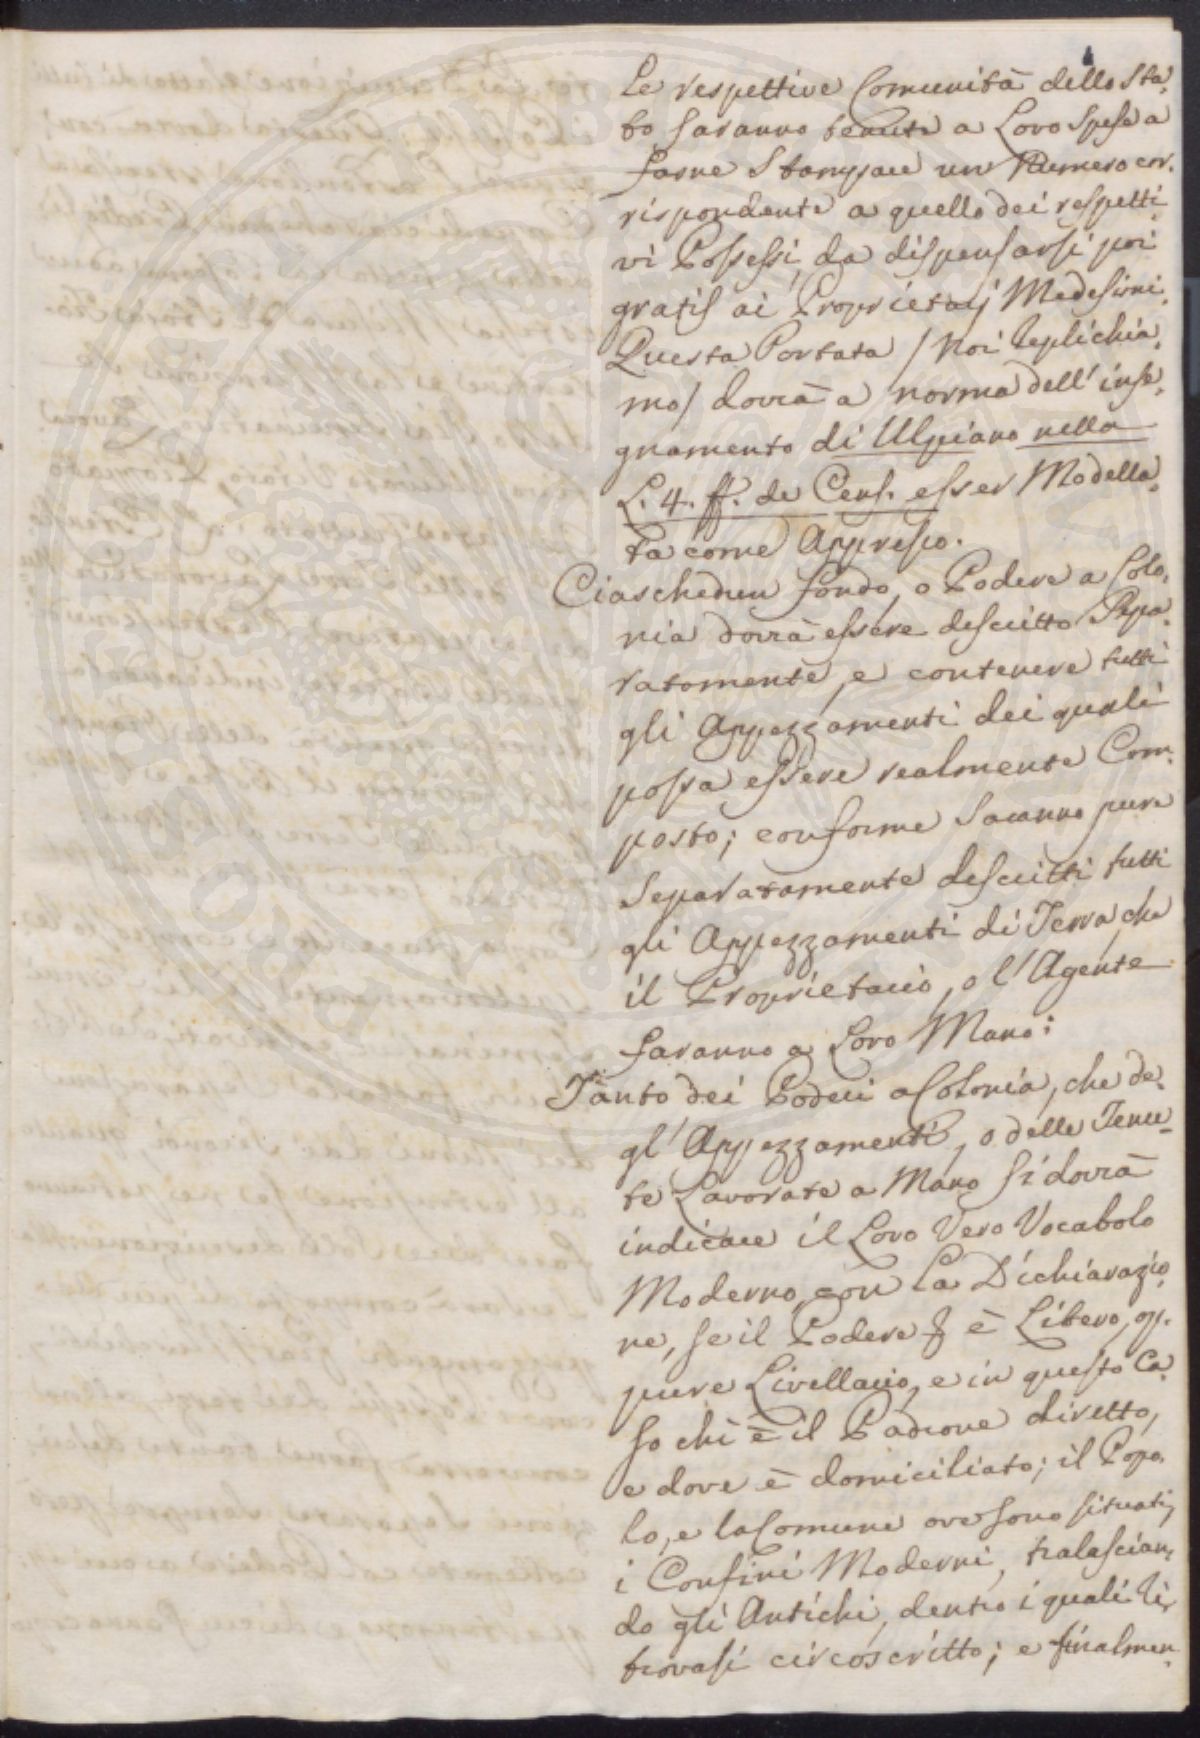 Le respettive Comunità dello Sta-
to saranno tenute a Loro Spese a
farne Stampare un Numero cor-
rispondente a quello dei respetti-
vi Possessi, da dispensarsi poi
gratis ai Proprietarj Medesimi.
Questa Portata / Noi replichia-
mo / dovrà a norma dell' inse-
gnamento di Ulpiano nella
L. 4. ff. de Cens. esser Modella-
ta come Appresso.
Ciaschedun fondo, o Podere a Colo-
nia dovrà essere descritto Sepa-
ratamente, e contenere tutti
gli Appezzamenti dei quali
possa essere realmente Com-
posto; conforme Saranno pure
Separatamente descritti tutti
gli Appezzamenti di Terra che
il Proprietario, o l'Agente
faranno a Loro Mano:
Tanto dei Poderi a Colonia, che de-
gl' Appezzamenti, o delle Tenu-
te Lavorate a Mano si dovrà
indicare il Loro Vero Vocabolo
Moderno, con La Dichiarazio-
ne, se il Podere è Libero, op-
pure Livellario, e in questo Ca-
so chi è il Padrone diretto,
e dove è domiciliato; il Popo-
lo, e la Comune ove sono situati,
i Confini Moderni, tralascian-
do gli Antichi, dentro i quali ri-
trovasi circoscritto; e finalmen-